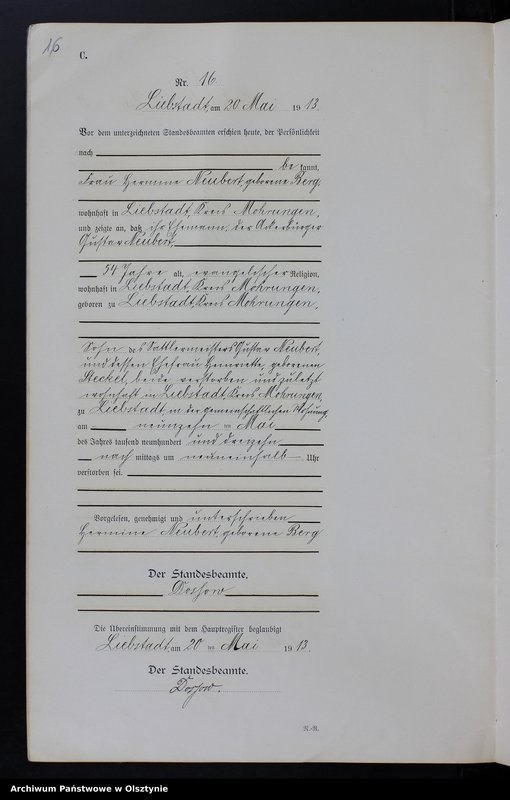 16
C.
Nr. 16
Liebstadt, am 20 Mai 1913.
Vor dem unterzeichneten Standesbeamten erschien heute, der Persönlichkeit
nach
be kannt,
Frau Hermine Neubert, geborene Berg,
wohnhaft in Liebstadt, Kreis Mohrungen,
und zeigte an, daß ihr Ehemann, der Ackerbürger
Gustav Neubert,
54 Jahre alt, evangelischer Religion,
wohnhaft in Liebstadt, Kreis Mohrungen,
geboren zu Liebstadt, Kreis Mohrungen,
Sohn des Sattlermeisters Gustav Neubert,
und dessen Ehefrau Henriette, geborenen
Steckel, beide verstorben und zuletzt
wohnhaft in Liebstadt, Kreis Mohrungen,
zu Liebstadt, in der gemeinschaftlichen Wohnung,
am neunzehn ten Mai
des Jahres tausend neunhundert und dreizehn
nach mittags um neuneinhalb Uhr
verstorben sei.
Vorgelesen, genehmigt und unterschrieben
Hermine Neubert, geborene Berg
Der Standesbeamte.
Die Übereinstimmung mit dem Hauptregister beglaubigt
Liebstadt, am 20 ten Mai 1913.
Der Standesbeamte.
R.-R.
Archiwum Państwowe w Olsztynie